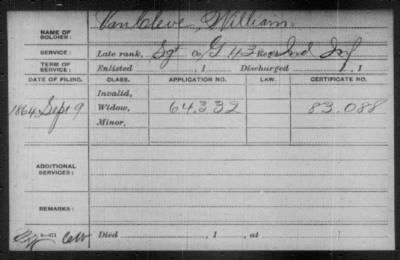 NAME OF SOLDIER: VanCleve, William.
SERVICE: Late rank, Sgt Co. G 43 Reg't Ind Inf
TERM OF SERVICE: Enlisted , 1 Discharged , 1
DATE OF FILING. CLASS. APPLICATION NO. LAW. CERTIFICATE NO.
Invalid,
1864 Sept 9 Widow, 64.332 83.088
Minor,
ADDITIONAL SERVICES:
REMARKS:
Died , 1 , at